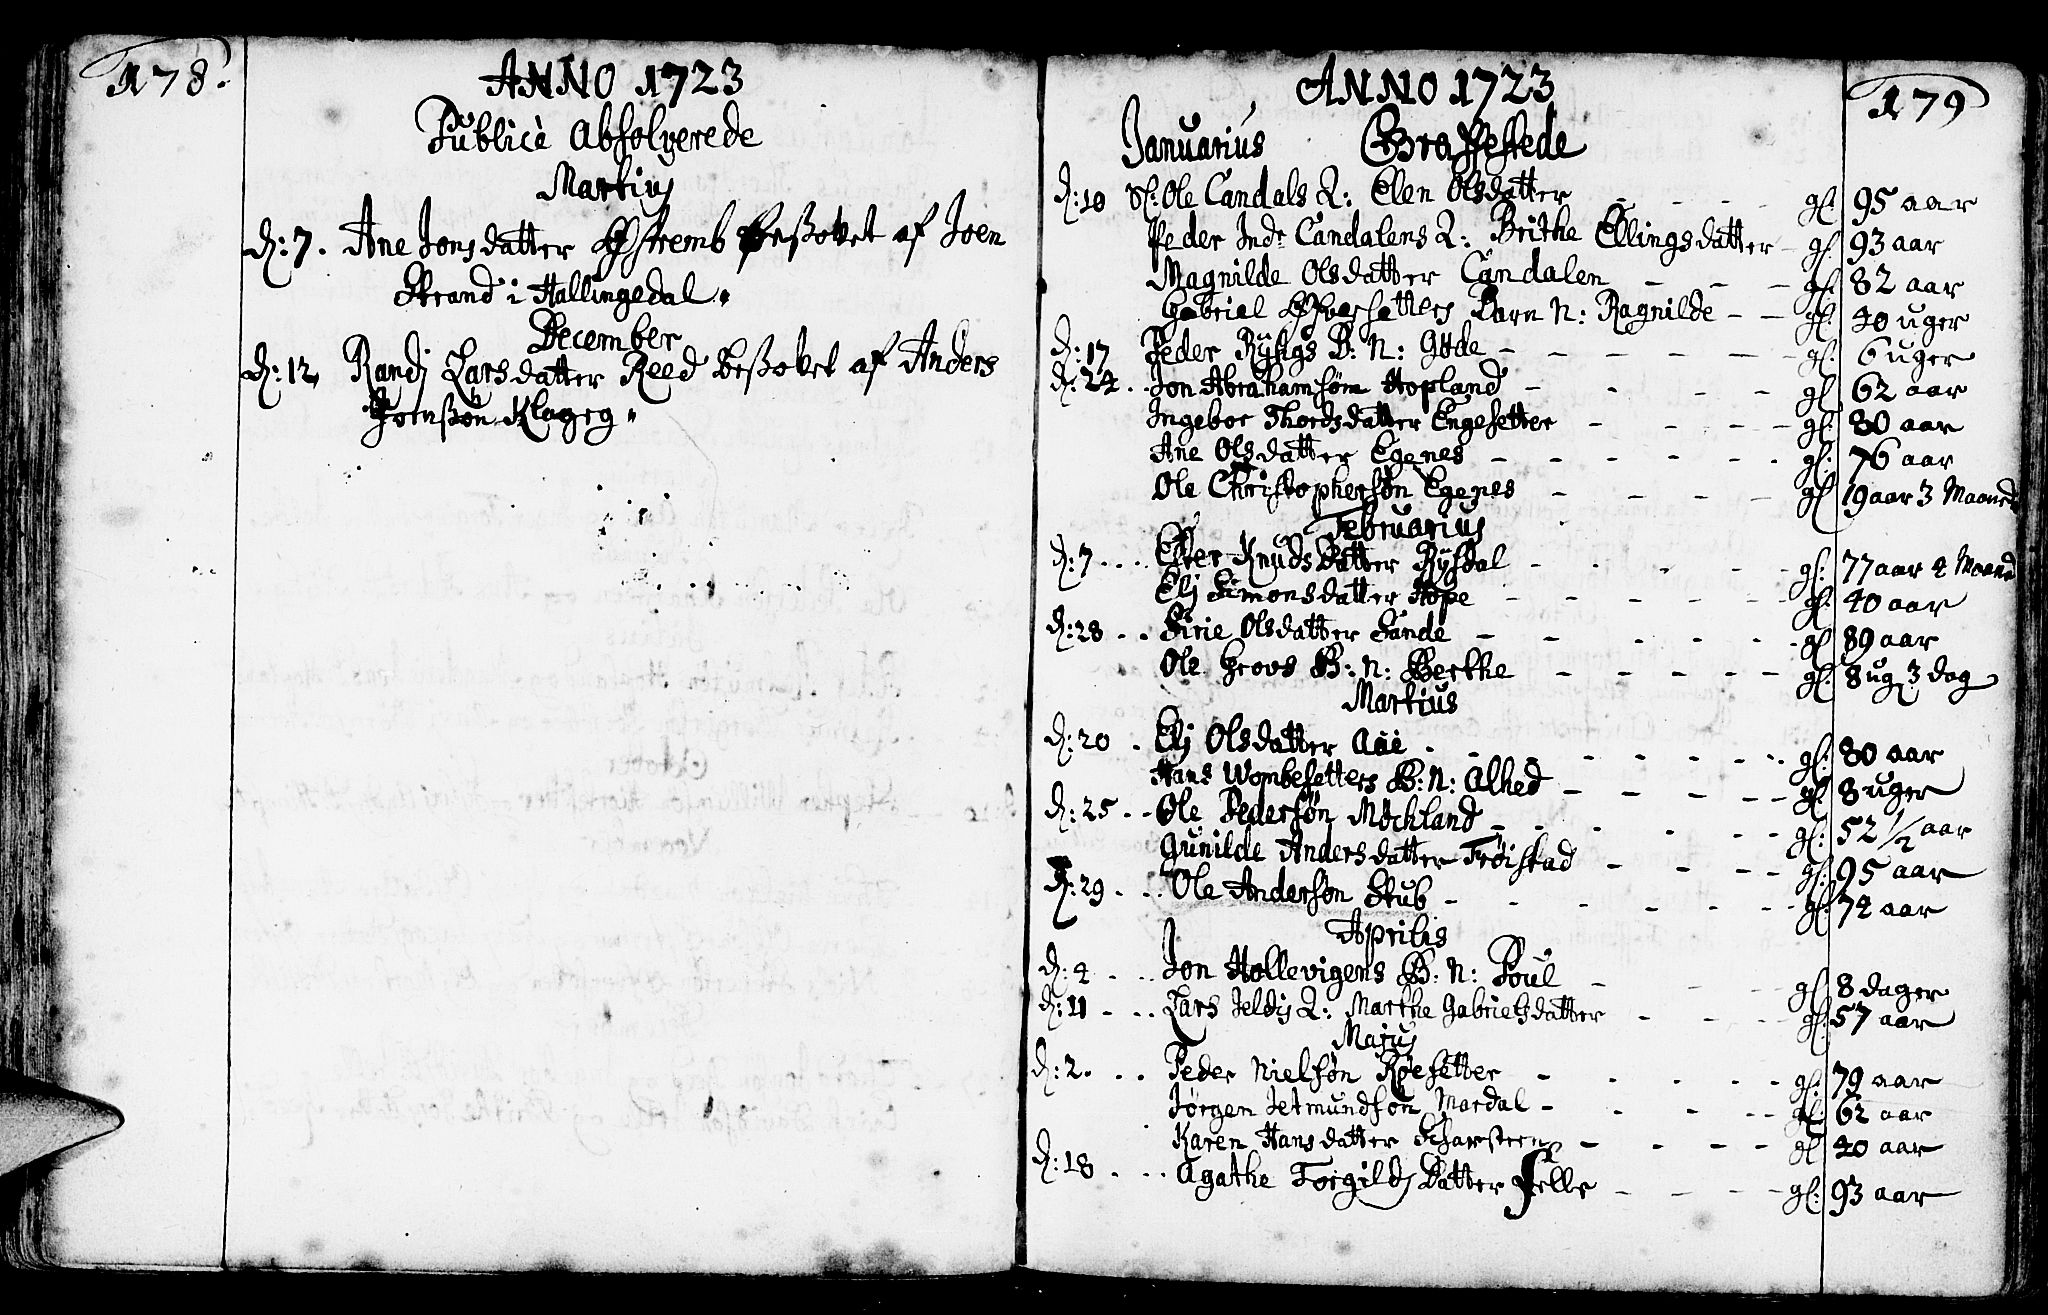 178.
ANNO 1723
Publicè Absolverede
Martius
d: 7. Ane Jonsdatter beßovet af Joen
Strand i Hallingedal.
December
d: 12, Randj Larsdatter Reed beßovet af Anders
Jonßøn
ANNO 1723
179
Januarius Begraffvede
d: 10 Sl: Ole Candals Q: Elen Olsdatter - - - gl: 95 aar
Peder Indr Candalens Q: Brithe Ellingsdatter - gl: 93 aar
Magnilde Olsdatter Candalen - - - gl: 82 aar
Gabriel Barn N: Ragnilde - - gl: 40 uger
d: 17 Peder Rysigs B: N: Gøde - - - - - - gl: 6 uger
d: 24 . . Jon Abrahamsøn Hopland - - - - gl: 62 aar
Ingebor Thordsdatter Engesetter - - - - gl: 80 aar
Ane Olsdatter Egenes - - - - - - gl: 76 aar
Ole Christophersøn Egenes - - - - gl: 19 aar 3 Maaned
Februarius
d: 7 . . . Knudsdatter Rysdal - - - - - gl: 77 aar 4 Maaned
Elj Simonsdatter Hope - - - - - - gl: 40 aar
d: 28 . . Sirie Olsdatter Sande - - - - - - gl: 89 aar
Ole Grovs B: N: Berthe - - - - - gl: 8 ug 3 dag
Martius
d: 20 . Elj Olsdatter Aae - - - - - - gl: 80 aar
Hans Wombesetters B: N: Alhed - - - - - gl: 8 uger
d: 25 . . Ole Pedersøn Møchland - - - - - gl: 52 1/2 aar
Gunilde Andersdatter Trøistad - - - - gl: 95 aar
d: 29 . . . Ole Andersøn Stub - - - - - - gl: 74 aar
Aprilis
d: 4 . . . Jon Hollevigens B: N: Poul - - - gl: 8 dager
d: 11 - . . Lars Jeldis Q: Marthe Gabrielsdatter - - - gl: 57 aar
Majus
d: 2. . . Peder Nielsøn Røesetter - - - - - gl: 79 aar
Jørgen Jetmundsøn Mardal - - - - gl: 62 aar
Karen Hansdatter - - - - gl: 40 aar
d: 18 . . . Agathe Torgildsdatter - - - - gl: 93 aar